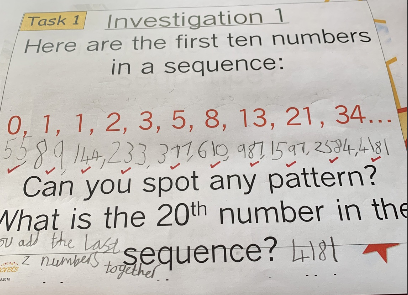 Task 1 Investigation 1
Here are the first ten numbers
in a sequence:
0, 1, 1, 2, 3, 5, 8, 13, 21, 34...
55 89 144, 233, 377, 610, 987, 1597, 2584, 4181
Can you spot any pattern?
What is the 20th number in the
you add the last
sequence? 4181
2 numbers together